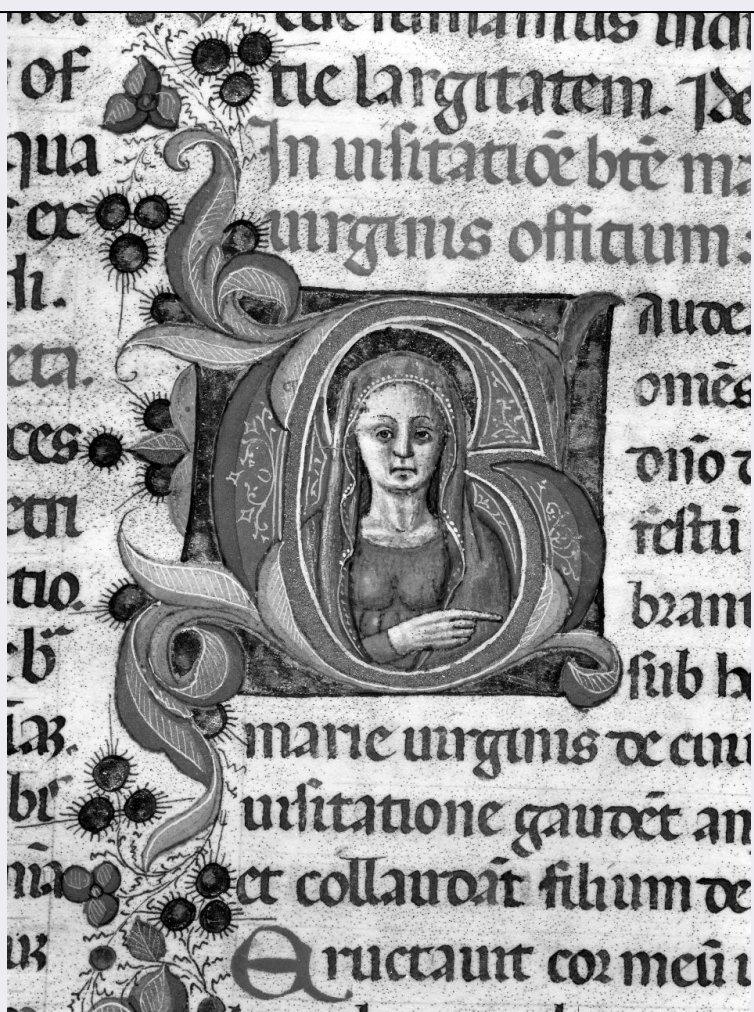 of
qua
ex
di.
eta.
ces
etri
tio.
tie largitatem. Pe
In uisitatiōe btē ma
uirginis offitium:
Gaude
omēs
dn̄o
festū
brant
sub h
marie uirginis de cuiu
uisitatione gaudēt an
et collaudāt filium de
Eructauit cor meū